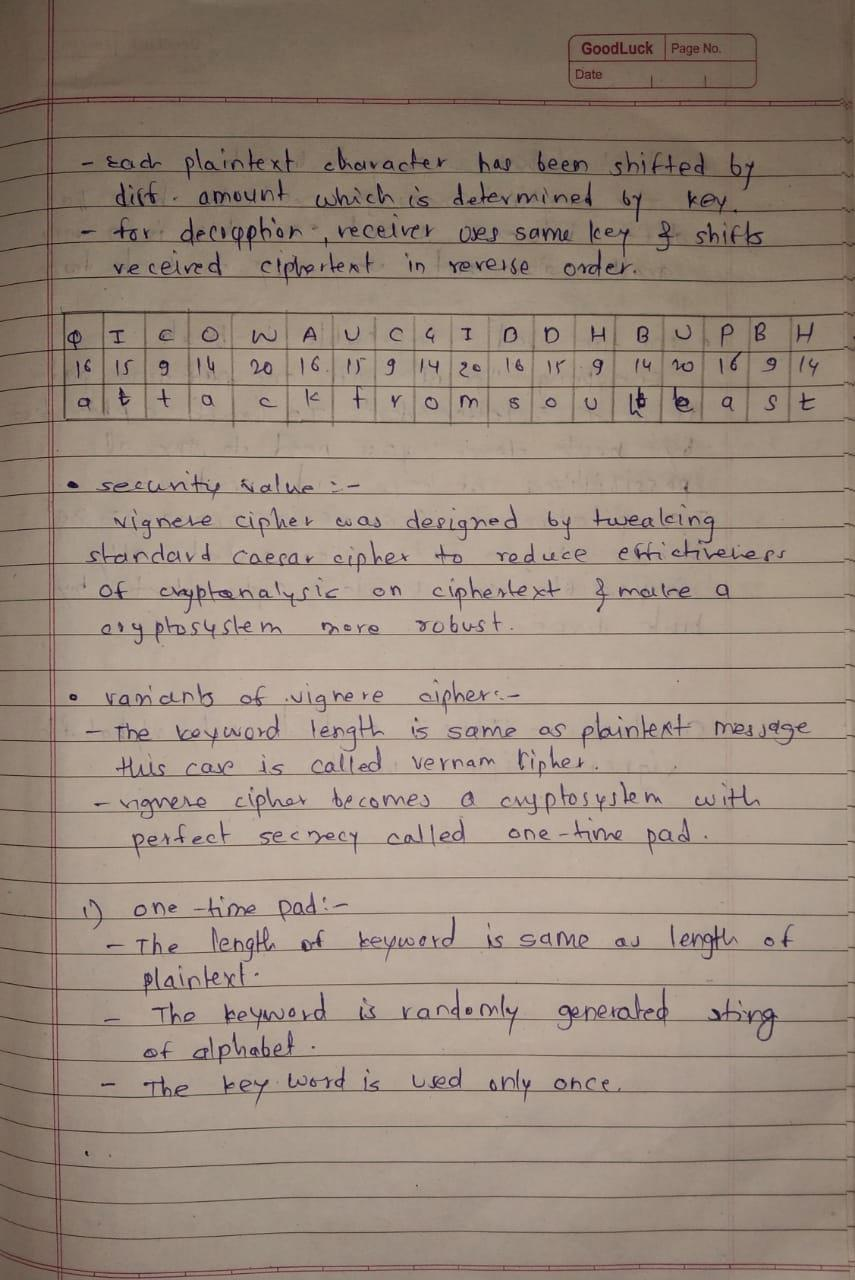 GoodLuck Page No.
Date
- Each plaintext character has been shifted by
diff. amount which is determined by key.
- for decryption, receiver uses same key & shifts
received ciphertext in reverse order.
Q I C O W A U C G I D D H B U P B H
16 15 9 14 20 16 15 9 14 20 16 15 9 14 20 16 9 14
a t t a c k f r o m s o u t e a s t
• security value :-
vignere cipher was designed by tweaking
standard caesar cipher to reduce effictiveness
of cryptanalysic on ciphertext & make a
cryptosystem more robust.
• variants of vignere cipher:-
- The keyword length is same as plaintext message
this case is called vernam cipher.
- vignere cipher becomes a cryptosystem with
perfect secrecy called one-time pad.
1) one-time pad:-
- The length of keyword is same as length of
plaintext.
- The keyword is randomly generated sting
of alphabet.
- The key word is used only once.